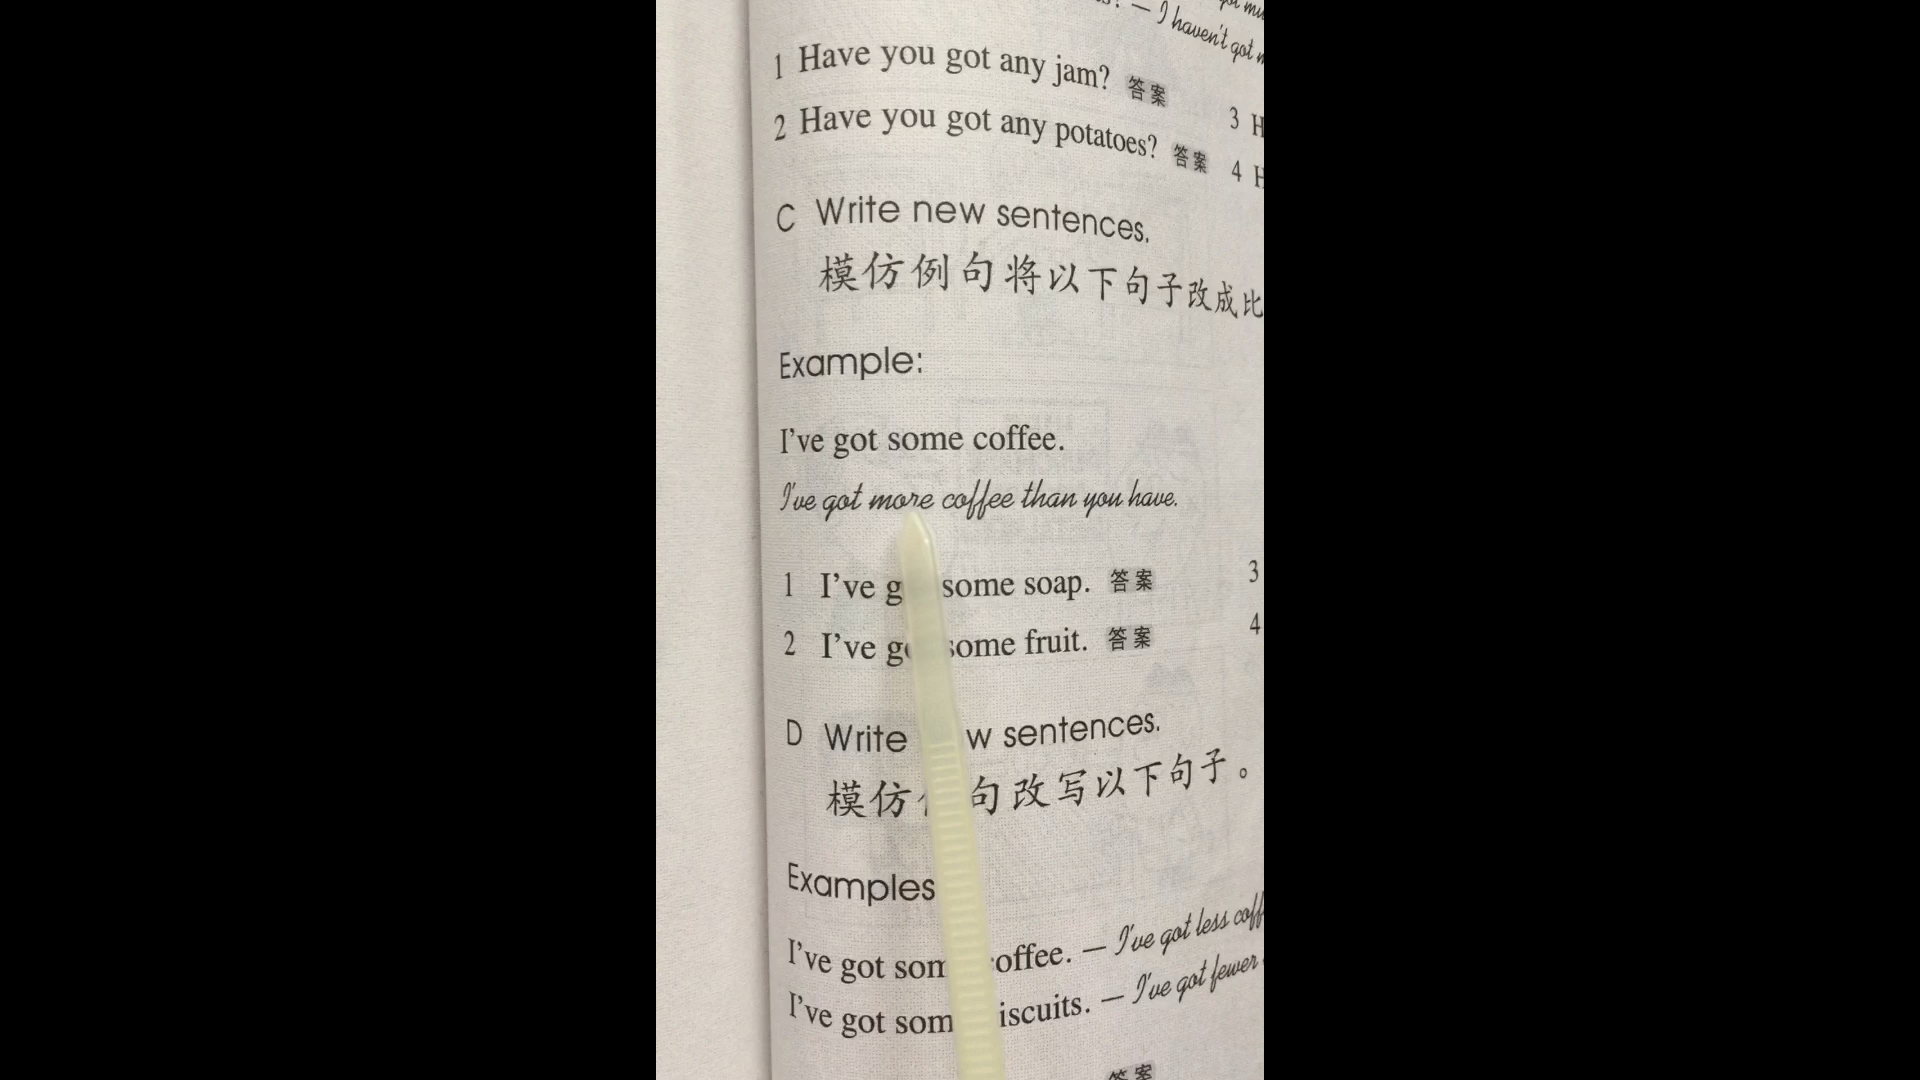 — I haven't got
1 Have you got any jam? 答案
2 Have you got any potatoes? 答案
3
4
C Write new sentences.
模仿例句将以下句子改成比
Example:
I've got some coffee.
I've got more coffee than you have.
1 I've some soap. 答案
3
2 I've some fruit. 答案
4
D Write sentences.
模仿 句改写以下句子。
Examples
I've got — I've got less
I've got — I've got fewer
答案